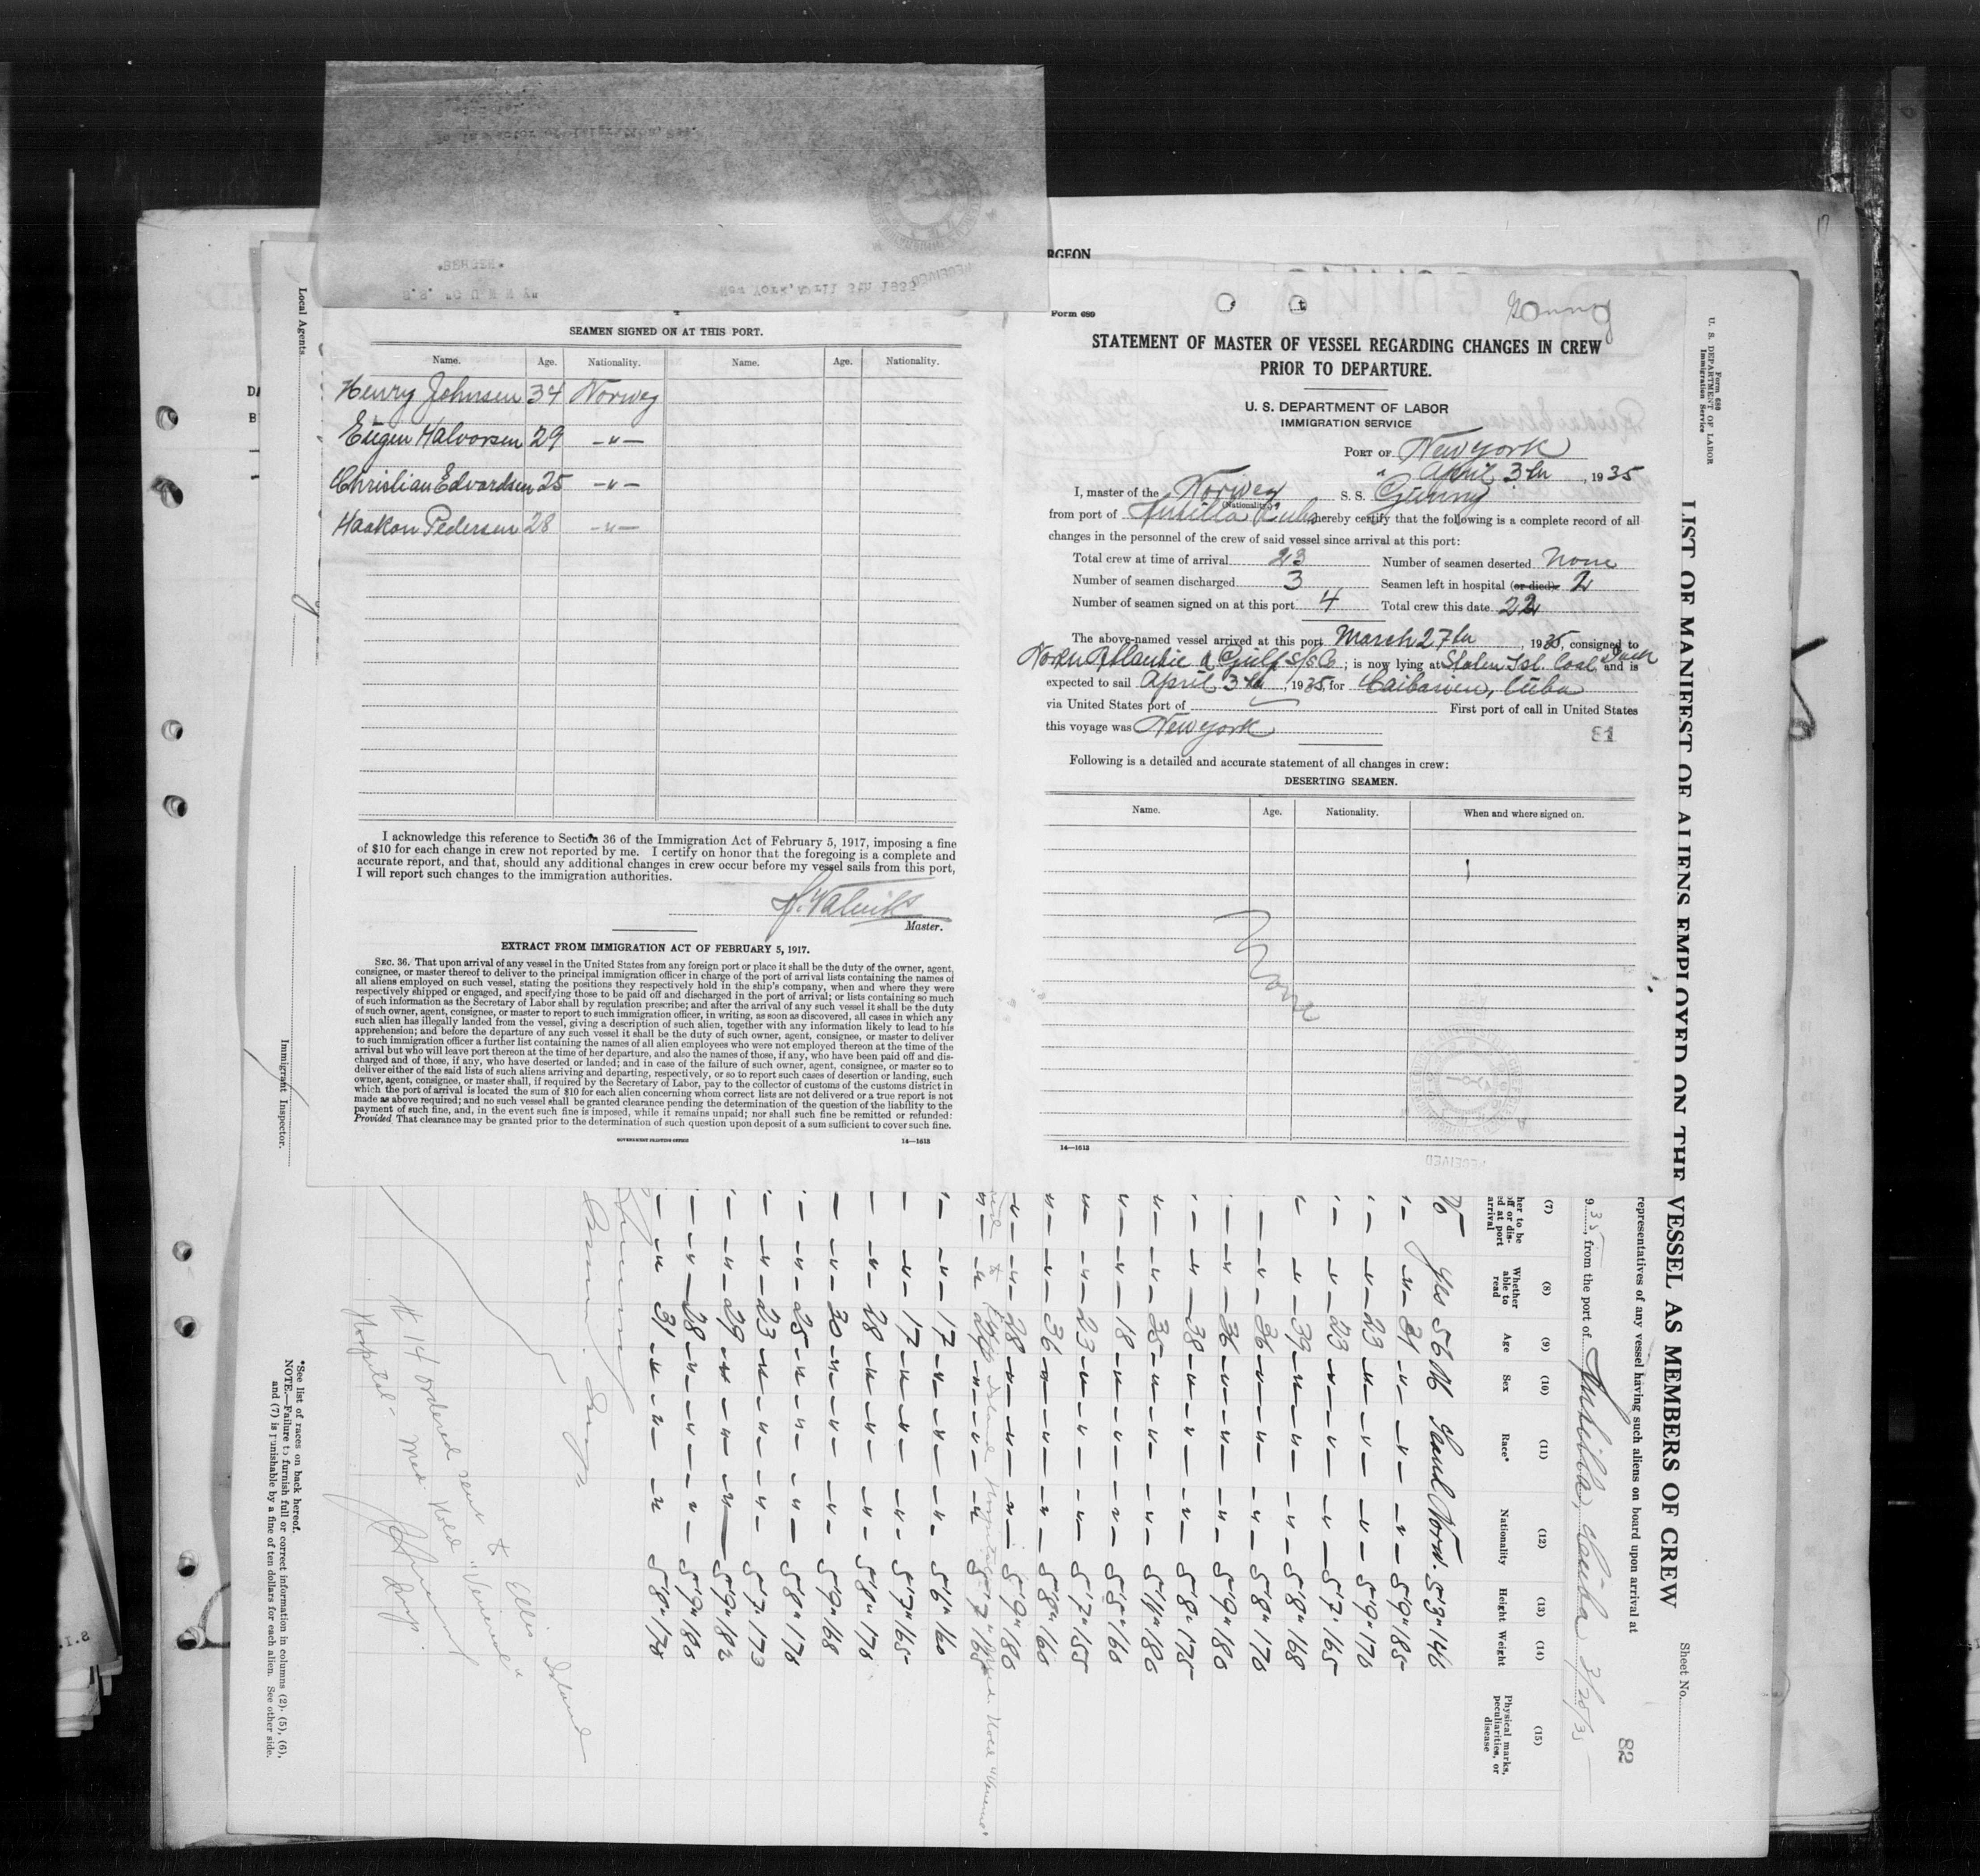 RGEON
Local Agents.
SEAMEN SIGNED ON AT THIS PORT.
Name. Age. Nationality. Name. Age. Nationality.
Henry Johnsen 34 Norway
Eugen Halvorsen 29 -"-
Christian Edvardsen 25 -"-
Haakon Pedersen 28 -"-
I acknowledge this reference to Section 36 of the Immigration Act of February 5, 1917, imposing a fine
of $10 for each change in crew not reported by me. I certify on honor that the foregoing is a complete and
accurate report, and that, should any additional changes in crew occur before my vessel sails from this port,
I will report such changes to the immigration authorities.
Master.
EXTRACT FROM IMMIGRATION ACT OF FEBRUARY 5, 1917.
SEC. 36. That upon arrival of any vessel in the United States from any foreign port or place it shall be the duty of the owner, agent,
consignee, or master thereof to deliver to the principal immigration officer in charge of the port of arrival lists containing the names of
all aliens employed on such vessel, stating the positions they respectively hold in the ship's company, when and where they were
respectively shipped or engaged, and specifying those to be paid off and discharged in the port of arrival; or lists containing so much
of such information as the Secretary of Labor shall by regulation prescribe; and after the arrival of any such vessel it shall be the duty
of such owner, agent, consignee, or master to report to such immigration officer, in writing, as soon as discovered, all cases in which any
such alien has illegally landed from the vessel, giving a description of such alien, together with any information likely to lead to his
apprehension; and before the departure of any such vessel it shall be the duty of such owner, agent, consignee, or master to deliver
to such immigration officer a further list containing the names of all alien employees who were not employed thereon at the time of the
arrival but who will leave port thereon at the time of her departure, and also the names of those, if any, who have been paid off and dis-
charged and of those, if any, who have deserted or landed; and in case of the failure of such owner, agent, consignee, or master so to
deliver either of the said lists of such aliens arriving and departing, respectively, or so to report such cases of desertion or landing, such
owner, agent, consignee, or master shall, if required by the Secretary of Labor, pay to the collector of customs of the customs district in
which the port of arrival is located the sum of $10 for each alien concerning whom correct lists are not delivered or a true report is not
made as above required; and no such vessel shall be granted clearance pending the determination of the question of the liability to the
payment of such fine, and, in the event such fine is imposed, while it remains unpaid; nor shall such fine be remitted or refunded:
Provided That clearance may be granted prior to the determination of such question upon deposit of a sum sufficient to cover such fine.
GOVERNMENT PRINTING OFFICE 14—1613
Immigrant Inspector.
Form 689
Gunny
STATEMENT OF MASTER OF VESSEL REGARDING CHANGES IN CREW
PRIOR TO DEPARTURE.
U. S. DEPARTMENT OF LABOR
IMMIGRATION SERVICE
PORT OF New York
April 3th, 1935
I, master of the Norway S. S. Gunny
(Nationality)
from port of Antilla Cuba hereby certify that the following is a complete record of all
changes in the personnel of the crew of said vessel since arrival at this port:
Total crew at time of arrival 23 Number of seamen deserted None
Number of seamen discharged 3 Seamen left in hospital (or died) 2
Number of seamen signed on at this port 4 Total crew this date 22
The above-named vessel arrived at this port March 27th, 1935, consigned to
North Atlantic & Gulf S/S Co; is now lying at Staten Isl. Coal Dock and is
expected to sail April 3th, 1935, for Caibarien, Cuba
via United States port of First port of call in United States
this voyage was New York
81
Following is a detailed and accurate statement of all changes in crew:
DESERTING SEAMEN.
Name. Age. Nationality. When and where signed on.
None
14—1613
RECEIVED
Form 689
U. S. DEPARTMENT OF LABOR
Immigration Service
LIST OF MANIFEST OF ALIENS EMPLOYED ON THE VESSEL AS MEMBERS OF CREW
Sheet No.
82
representatives of any vessel having such aliens on board upon arrival at
935, from the port of Antilla, Cuba 3/20/35
(7) (8) (9) (10) (11) (12) (13) (14) (15)
Whether able to read Age Sex Race* Nationality Height Weight Physical marks, peculiarities, or disease
No Yes 56 M Scand Norw. 5'3" 146
31 5'9" 185
23 5'9" 170
23 5'7" 165
39 5'8" 168
36 5'8" 170
36 5'9" 180
38 5'8" 175
35 5'11" 180
18 5'5" 160
23 5'7" 155
36 5'8" 160
28 5'9" 180
29 5'7" 165
17 5'6" 160
17 5'7" 165
28 5'8" 176
30 5'9" 168
25 5'8" 176
23 5'7" 173
29 5'9" 182
28 5'9" 180
31 5'8" 178
# 14 ordered sent to Ellis Island
Hospital - Med. Hold "Venereal"
Insp.
*See list of races on back hereof.
NOTE.—Failure to furnish full or correct information in columns (2), (5), (6),
and (7) is punishable by a fine of ten dollars for each alien. See other side.